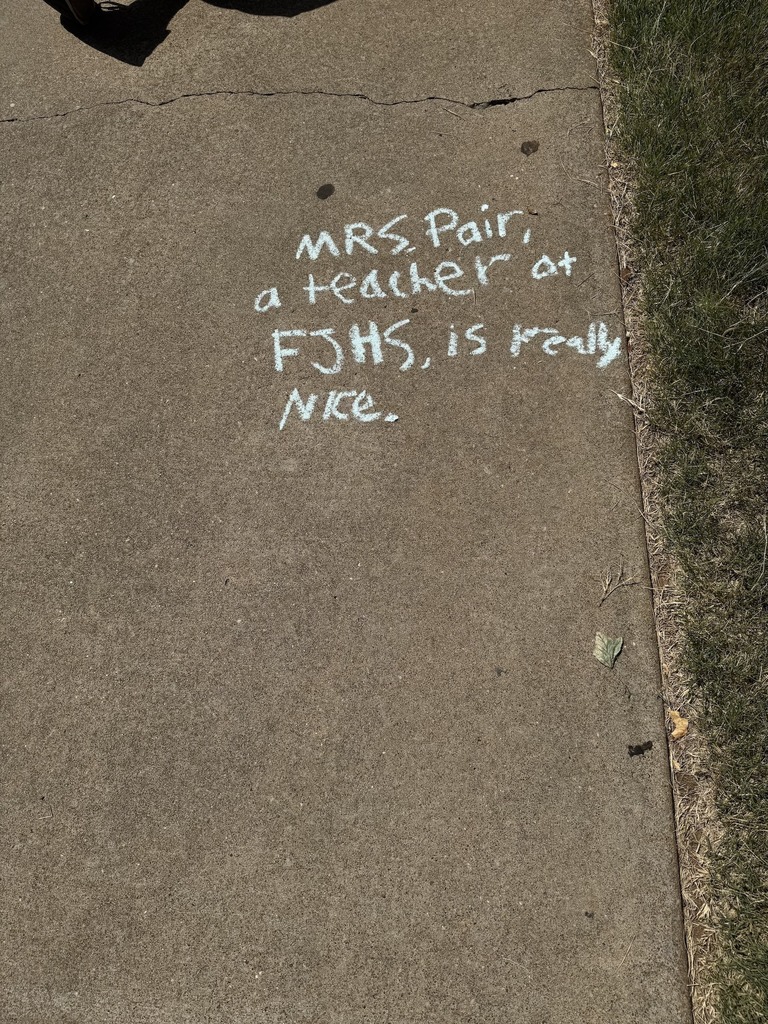 MRS. Pair,
a teacher at
FJHS, is really
Nice.